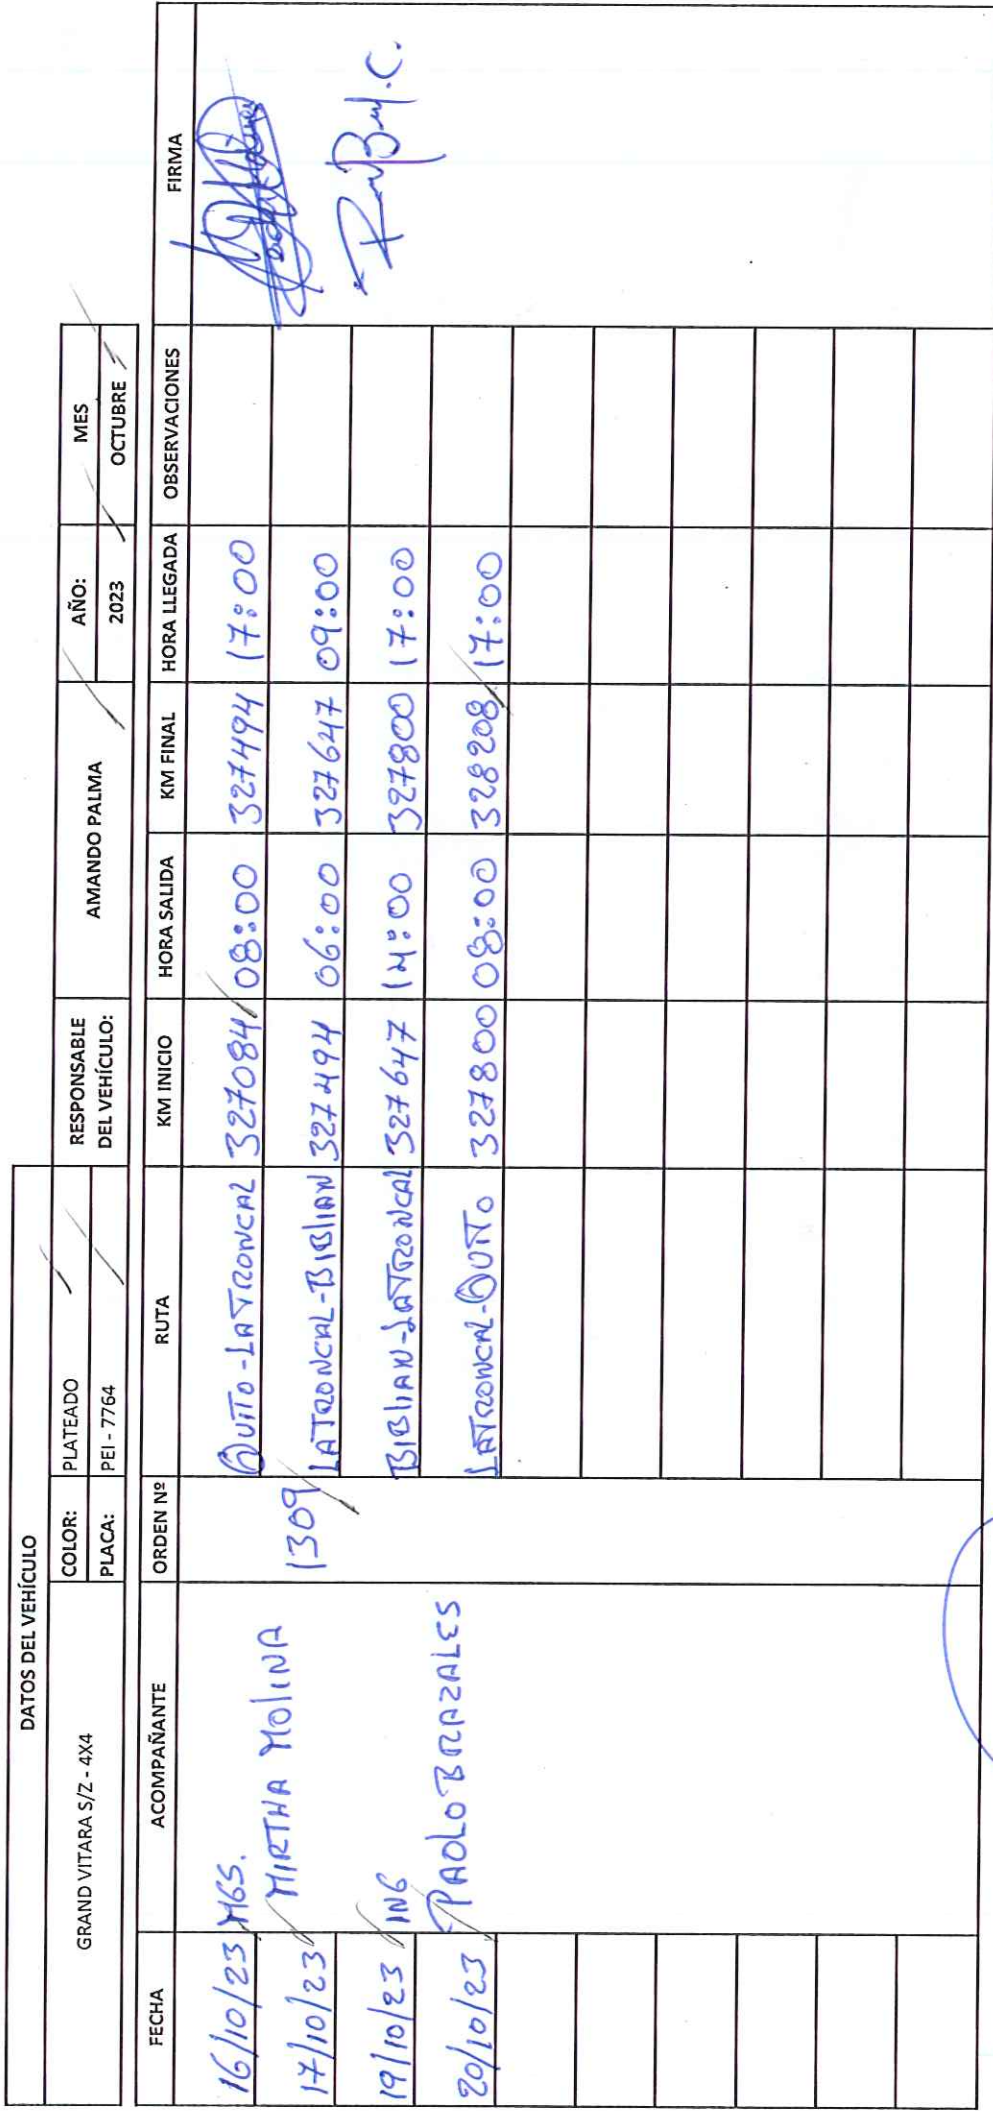 DATOS DEL VEHÍCULO
GRAND VITARA S/Z - 4X4
COLOR: PLATEADO
PLACA: PEI - 7764
RESPONSABLE DEL VEHÍCULO:
AMANDO PALMA
AÑO: MES
2023 OCTUBRE
FECHA ACOMPAÑANTE ORDEN Nº RUTA KM INICIO HORA SALIDA KM FINAL HORA LLEGADA OBSERVACIONES FIRMA
16/10/23 MGS. QUITO-LATRONCAL 327084 08:00 327494 17:00
17/10/23 MIRTHA MOLINA 1309 LATRONCAL-BIBLIAN 327494 06:00 327647 09:00
19/10/23 ING BIBLIAN-LATRONCAL 327647 14:00 327800 17:00
20/10/23 PAOLO BRAZALES LATRONCAL-QUITO 327800 08:00 328208 17:00